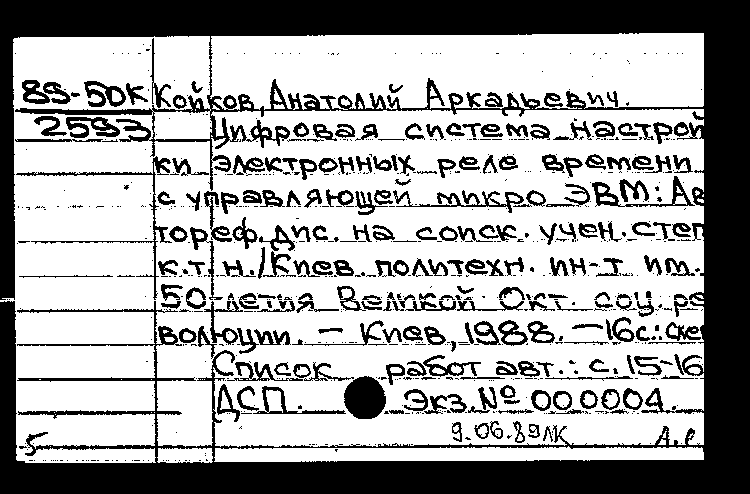 89-50К Койков, Анатолий Аркадьевич.
2593 Цифровая система настрой
ки электронных реле времени
с управляющей микро ЭВМ: Ав
тореф. дис. на соиск. учен. степ
к.т.н. / Киев. политехн. ин-т им.
50-летия Великой Окт. соц. ре
волюции. – Киев, 1988. – 16с.: схем
Список работ авт.: с. 15-16
ДСП. Экз. № 000004.
5 9.06.89ЛК А.Р